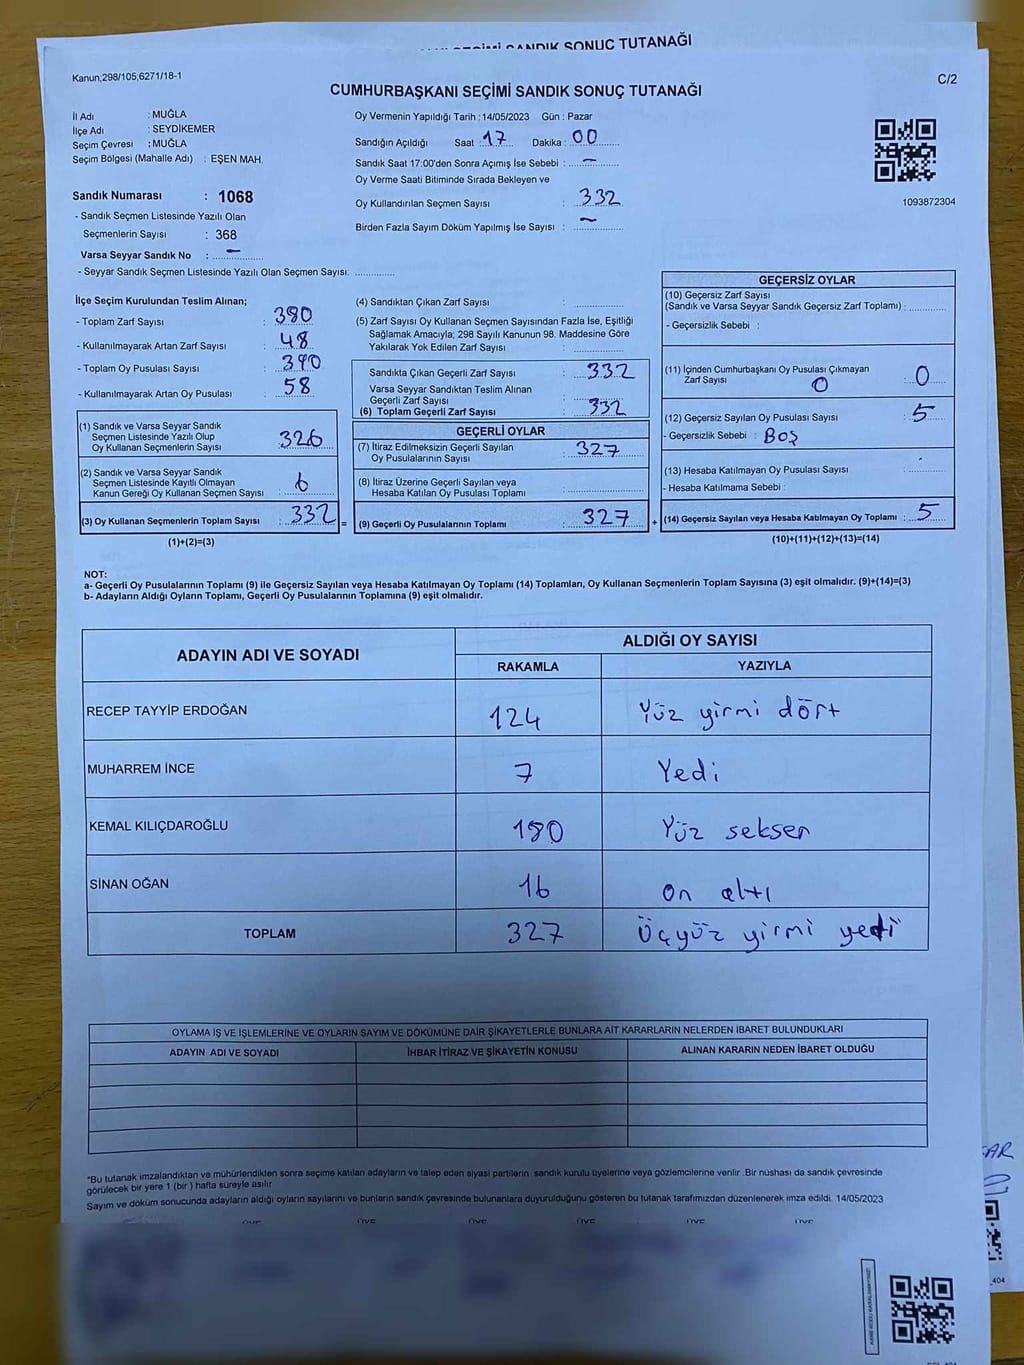 SEÇİMİ SANDIK SONUÇ TUTANAĞI
Kanun;298/105;6271/18-1
C/2
CUMHURBAŞKANI SEÇİMİ SANDIK SONUÇ TUTANAĞI
İl Adı : MUĞLA
İlçe Adı : SEYDİKEMER
Seçim Çevresi : MUĞLA
Seçim Bölgesi (Mahalle Adı) : EŞEN MAH.
Sandık Numarası : 1068
- Sandık Seçmen Listesinde Yazılı Olan
Seçmenlerin Sayısı : 368
Varsa Seyyar Sandık No : –
- Seyyar Sandık Seçmen Listesinde Yazılı Olan Seçmen Sayısı: ............
Oy Vermenin Yapıldığı Tarih : 14/05/2023 Gün : Pazar
Sandığın Açıldığı Saat : 17 Dakika : 00
Sandık Saat 17:00'den Sonra Açımış İse Sebebi : –
Oy Verme Saati Bitiminde Sırada Bekleyen ve
Oy Kullandırılan Seçmen Sayısı : 332
Birden Fazla Sayım Döküm Yapılmış İse Sayısı : –
1093872304
İlçe Seçim Kurulundan Teslim Alınan;
- Toplam Zarf Sayısı : 380
- Kullanılmayarak Artan Zarf Sayısı : 48
- Toplam Oy Pusulası Sayısı : 390
- Kullanılmayarak Artan Oy Pusulası : 58
(1) Sandık ve Varsa Seyyar Sandık
Seçmen Listesinde Yazılı Olup
Oy Kullanan Seçmenlerin Sayısı : 326
(2) Sandık ve Varsa Seyyar Sandık
Seçmen Listesinde Kayıtlı Olmayan
Kanun Gereği Oy Kullanan Seçmen Sayısı : 6
(3) Oy Kullanan Seçmenlerin Toplam Sayısı : 332 =
(1)+(2)=(3)
(4) Sandıktan Çıkan Zarf Sayısı :
(5) Zarf Sayısı Oy Kullanan Seçmen Sayısından Fazla İse, Eşitliği
Sağlamak Amacıyla; 298 Sayılı Kanunun 98. Maddesine Göre
Yakılarak Yok Edilen Zarf Sayısı :
Sandıkta Çıkan Geçerli Zarf Sayısı : 332
Varsa Seyyar Sandıktan Teslim Alınan
Geçerli Zarf Sayısı :
(6) Toplam Geçerli Zarf Sayısı : 332
GEÇERLİ OYLAR
(7) İtiraz Edilmeksizin Geçerli Sayılan
Oy Pusulalarının Sayısı : 327
(8) İtiraz Üzerine Geçerli Sayılan veya
Hesaba Katılan Oy Pusulası Toplamı :
(9) Geçerli Oy Pusulalarının Toplamı : 327 +
GEÇERSİZ OYLAR
(10) Geçersiz Zarf Sayısı
(Sandık ve Varsa Seyyar Sandık Geçersiz Zarf Toplamı) :
- Geçersizlik Sebebi :
(11) İçinden Cumhurbaşkanı Oy Pusulası Çıkmayan
Zarf Sayısı 0 : 0
(12) Geçersiz Sayılan Oy Pusulası Sayısı : 5
- Geçersizlik Sebebi : BOŞ
(13) Hesaba Katılmayan Oy Pusulası Sayısı :
- Hesaba Katılmama Sebebi :
(14) Geçersiz Sayılan veya Hesaba Katılmayan Oy Toplamı : 5
(10)+(11)+(12)+(13)=(14)
NOT:
a- Geçerli Oy Pusulalarının Toplamı (9) ile Geçersiz Sayılan veya Hesaba Katılmayan Oy Toplamı (14) Toplamları, Oy Kullanan Seçmenlerin Toplam Sayısına (3) eşit olmalıdır. (9)+(14)=(3)
b- Adayların Aldığı Oyların Toplamı, Geçerli Oy Pusulalarının Toplamına (9) eşit olmalıdır.
ADAYIN ADI VE SOYADI ALDIĞI OY SAYISI
RAKAMLA YAZIYLA
RECEP TAYYİP ERDOĞAN 124 Yüz yirmi dört
MUHARREM İNCE 7 Yedi
KEMAL KILIÇDAROĞLU 180 Yüz seksen
SİNAN OĞAN 16 on altı
TOPLAM 327 Üçyüz yirmi yedi
OYLAMA İŞ VE İŞLEMLERİNE VE OYLARIN SAYIM VE DÖKÜMÜNE DAİR ŞİKAYETLERLE BUNLARA AİT KARARLARIN NELERDEN İBARET BULUNDUKLARI
ADAYIN ADI VE SOYADI İHBAR İTİRAZ VE ŞİKAYETİN KONUSU ALINAN KARARIN NEDEN İBARET OLDUĞU
*Bu tutanak imzalandıktan ve mühürlendikten sonra seçime katılan adayların ve talep eden siyasi partilerin sandık kurulu üyelerine veya gözlemcilerine verilir .Bir nüshası da sandık çevresinde
görülecek bir yere 1 (bir ) hafta süreyle asılır
Sayım ve döküm sonucunda adayların aldığı oyların sayılarını ve bunların sandık çevresinde bulunanlara duyurulduğunu gösteren bu tutanak tarafımızdan düzenlenerek imza edildi. 14/05/2023
ÜYE ÜYE ÜYE ÜYE ÜYE ÜYE